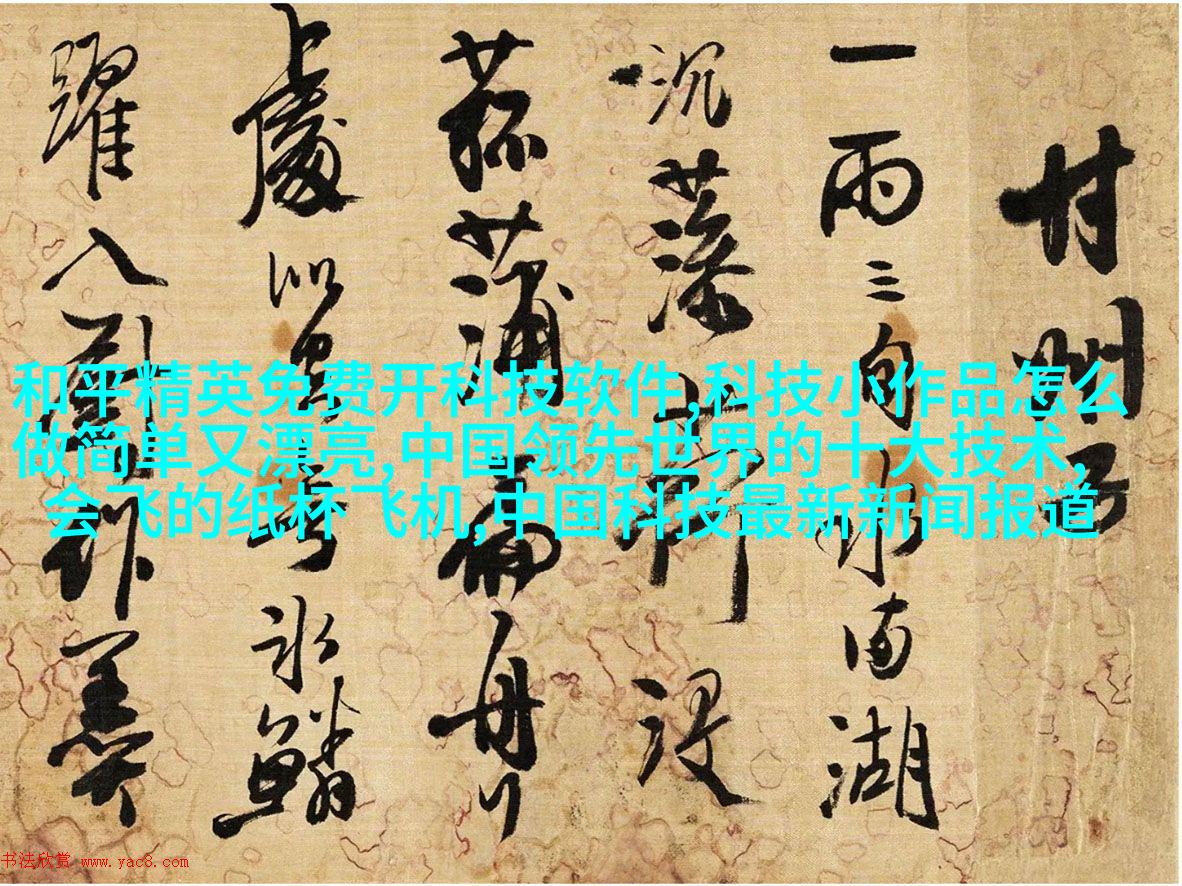 甘州子
一雨三旬水湖
沉荇没
菰蒲扁舟
處氷鱗
躍入羹
和平精英免费开科技软件,科技小作品怎么
做简单又漂亮,中国领先世界的十大技术,
会飞的纸杯飞机,中国科技最新新闻报道
书法欣赏 www.yac8.com